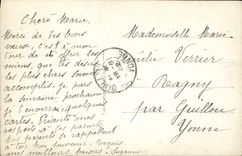 Chère Marie
Merci de tes bons
vœux, c'est à mon
tour de t'offrir les
miens, que tes désirs
les plus chers soient
accomplis. je pars
la semaine prochaine
je t'enverrai quelques
cartes. Présente mes
respects à tes parents
les parents se rappellent
à ton bon souvenir. Reçois
mes meilleurs baisers. Suzanne
Mademoiselle Marie
Julie Verrier
Magny
par Guillon
Yonne